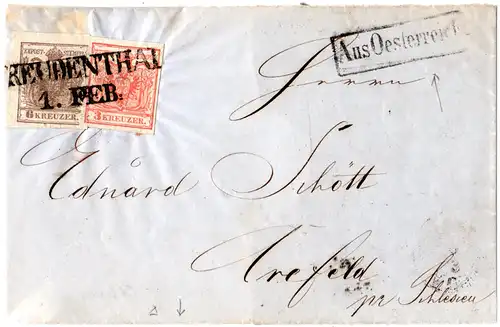 K.K.POST-STEMPEL
REUDENTHAL
1. FEB.
6 KREUZER.
3 KREUZER.
Aus Oesterreich
Herrn
Eduárd Schött
Crefeld
pr Schlesien